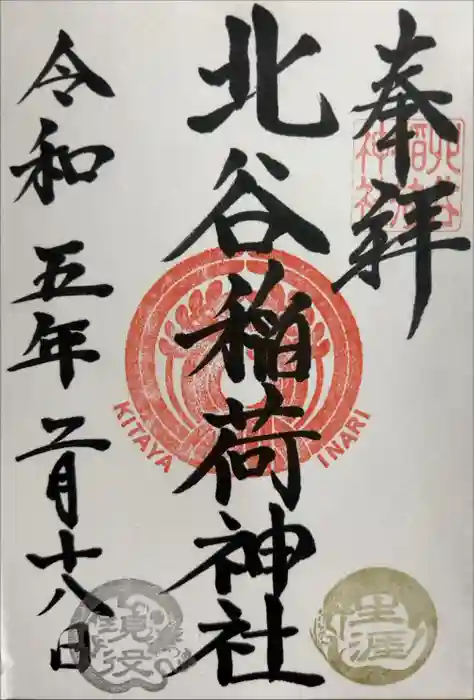 奉拝
北谷稲荷神社
北谷稲荷神社
KITAYA INARI
令和五年二月十八日
生涯
現役